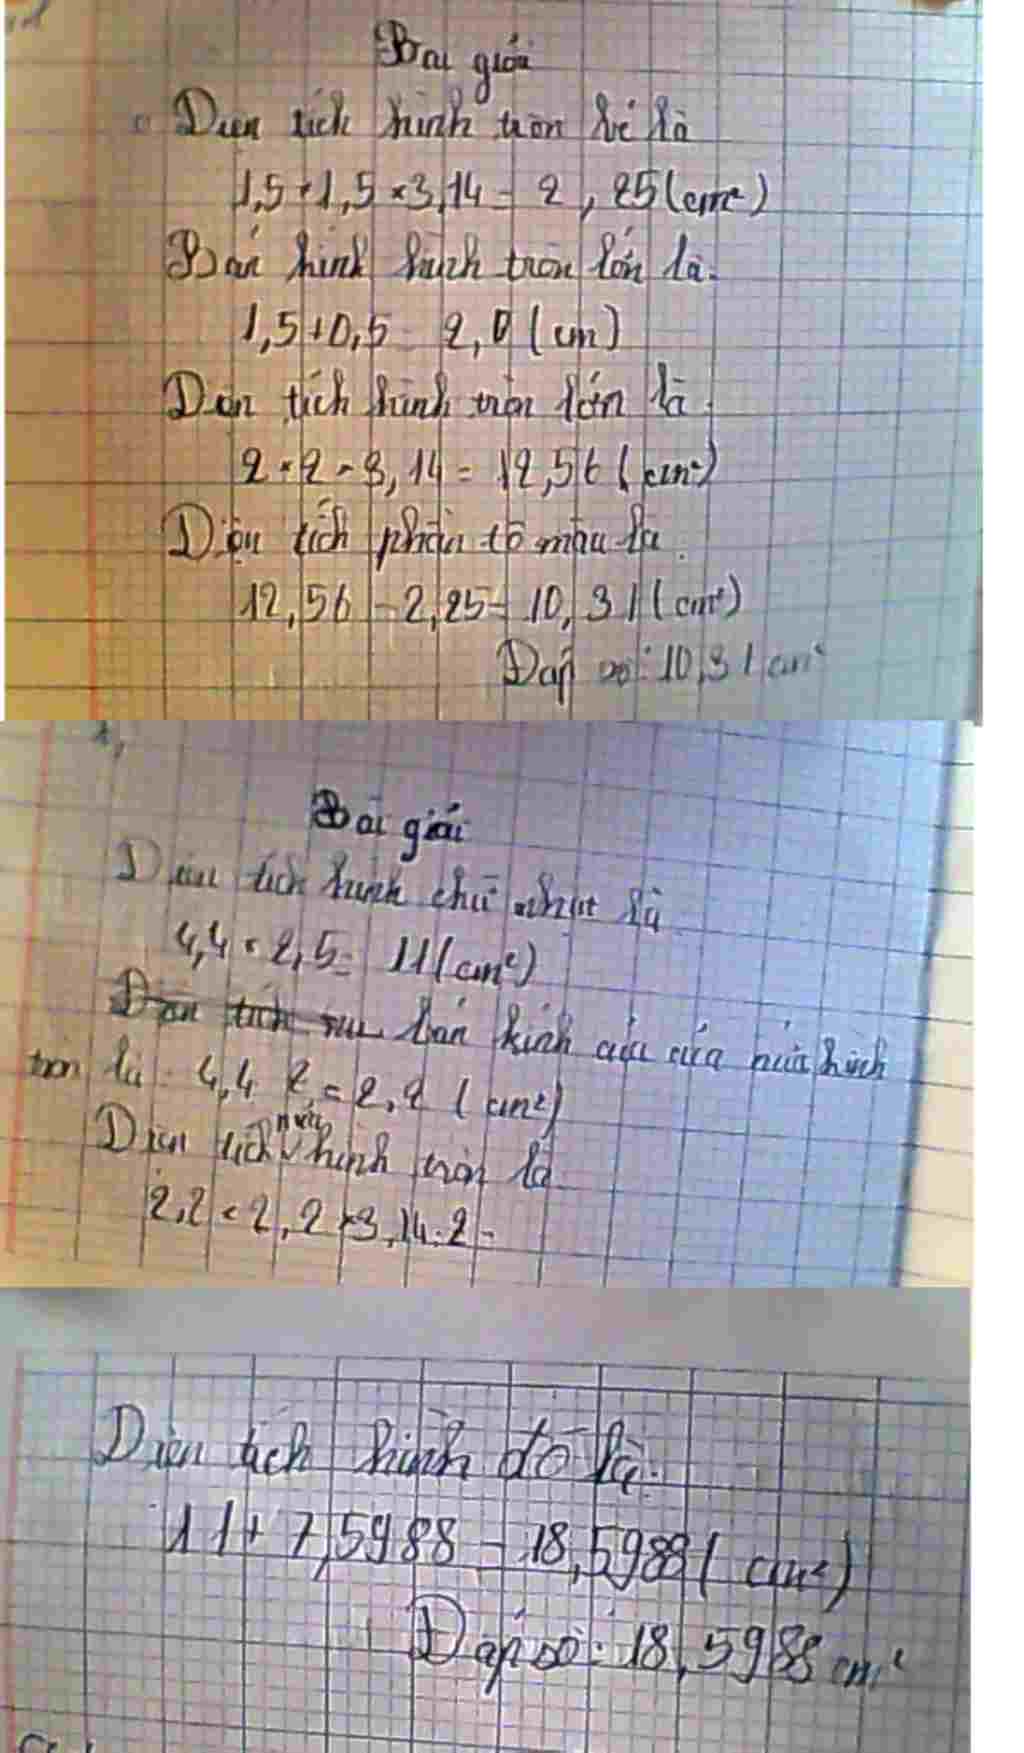 Bài giải
Diện tích hình tròn bé là
1,5 × 1,5 × 3,14 = 2,25 (cm²)
Bán kính hình tròn lớn là.
1,5 + 0,5 = 2,0 (cm)
Diện tích hình tròn lớn là.
2 × 2 × 3,14 = 12,56 (cm²)
Diện tích phần tô màu là.
12,56 - 2,25 = 10,31 (cm²)
Đáp số: 10,31 cm²
1,
Bài giải
Diện tích hình chữ nhật là
4,4 × 2,5 = 11 (cm²)
Diện tích bán kính của của nửa hình
tròn là: 4,4 2 = 2,2 (cm²)
Diện tích nửa hình tròn là
2,2 × 2,2 × 3,14 : 2 =
Diện tích hình đó là.
11 + 7,5988 = 18,5988 (cm²)
Đáp số: 18,5988 cm²